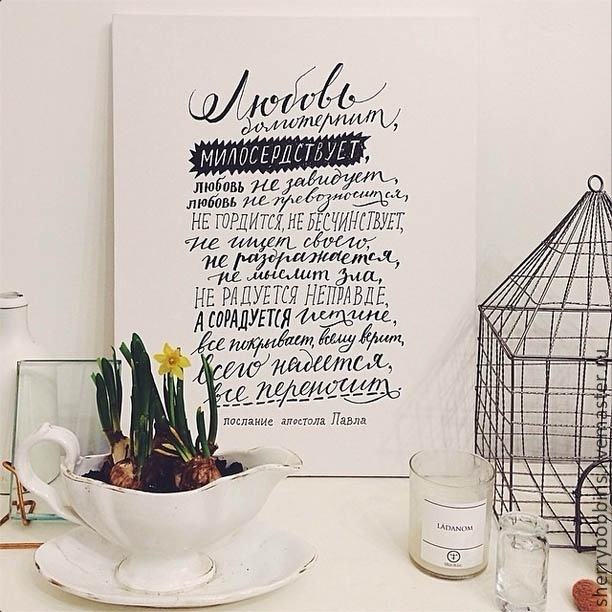 Любовь
долготерпит,
МИЛОСЕРДСТВУЕТ,
ЛЮБОВЬ не завидует,
ЛЮБОВЬ не превозносится,
НЕ ГОРДИТСЯ, НЕ БЕСЧИНСТВУЕТ,
не ищет своего,
не раздражается,
не мыслит зла,
НЕ РАДУЕТСЯ НЕПРАВДЕ,
А СОРАДУЕТСЯ истине,
все покрывает, всему верит,
всего надеется,
все переносит.
послание апостола Павла
LÄDANOM
sherrybobbins.livemaster.ru